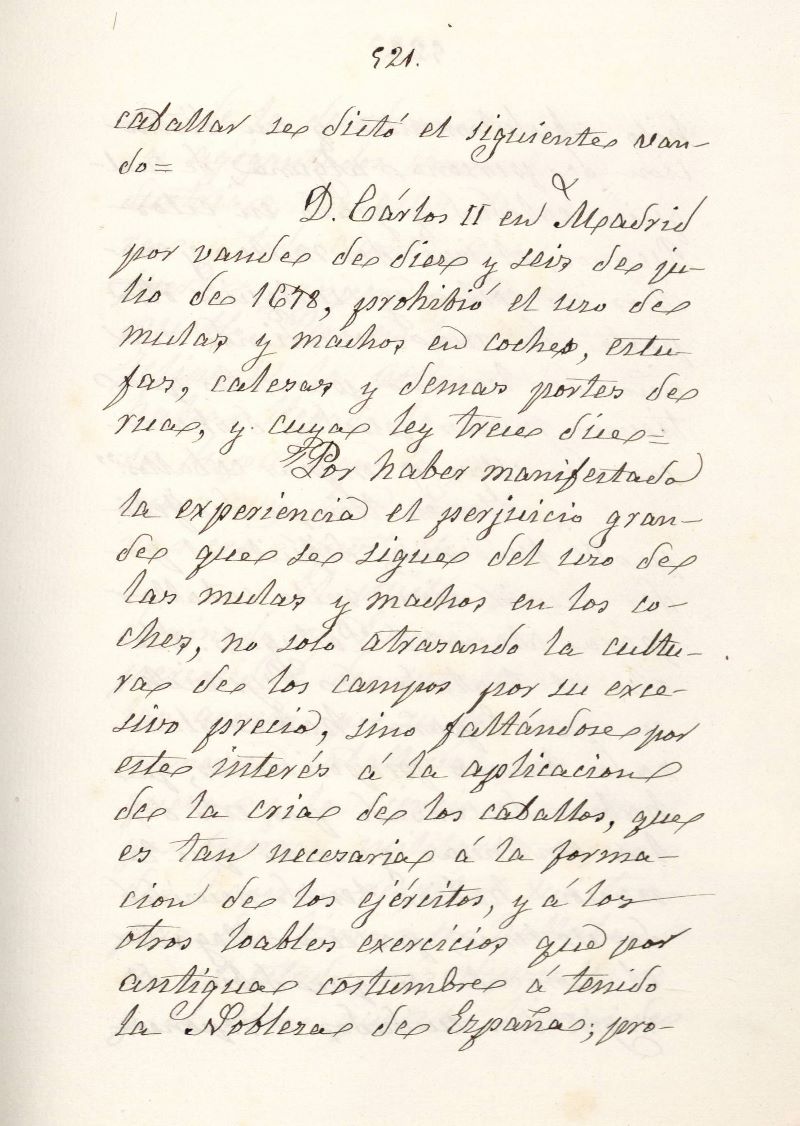 521.
caballar se dictó el siguiente van-
do=
D. Cárlos II en Madrid
por vando de diez y seis de ju-
lio de 1678, prohibió el uso de
mulas y machos en coches, estu-
fas, calesas y demas portes de
rua, y cuya ley trece dice=
"Por haber manifestado
la experiencia el perjuicio gran-
de que se sigue del uso de
las mulas y machos en los co-
ches, no solo atrasando la cultu-
ra de los campos por su exce-
sivo precio, sino faltándose por
este interés á la aplicacion
de la cria de los caballos, que
es tan necesaria á la forma-
cion de los ejércitos, y á los
otros loables exercicios que por
antigua costumbre á tenido
la Nobleza de España; pro-